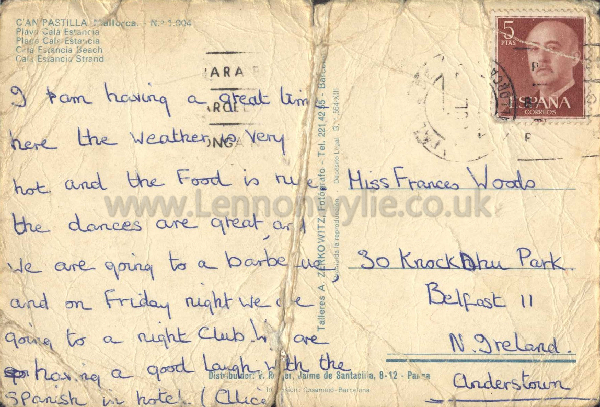 C'AN PASTILLA Mallorca. - N.º 1.004
Playa Cala Estancia
Place Cala Estancia
Cala Estancia Beach
Cala Estancia Strand
5
PTAS
ESPAÑA
CORREOS
I am having a great time
here the weather is very
hot and the Food is nice
the dances are great and
we are going to a barbecue
and on Friday night we are
going to a night Club We are
having a good laugh with the
Spanish in hotel. (Alice)
Talleres A. ZERKOWITZ, Fotógrafo - Tel. 221
Miss Frances Woods
30 Knock Dhu Park.
Belfast 11
N. Ireland.
Anderstown
Jaime de Santacilia, 8-12 - Palma
www.LennonWylie.co.uk